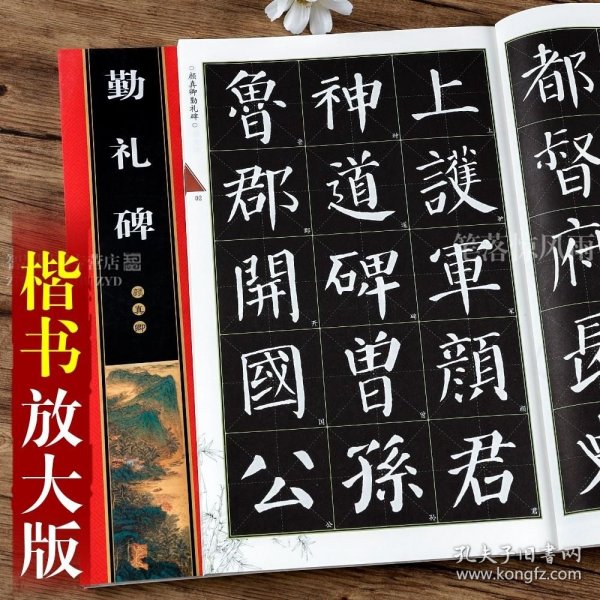 勤礼碑
颜真卿
楷书放大版
颜真卿勤礼碑
都督府長
上護軍顏君
神道碑曾孫
魯郡開國公
孔夫子旧书网
www.kongfz.com